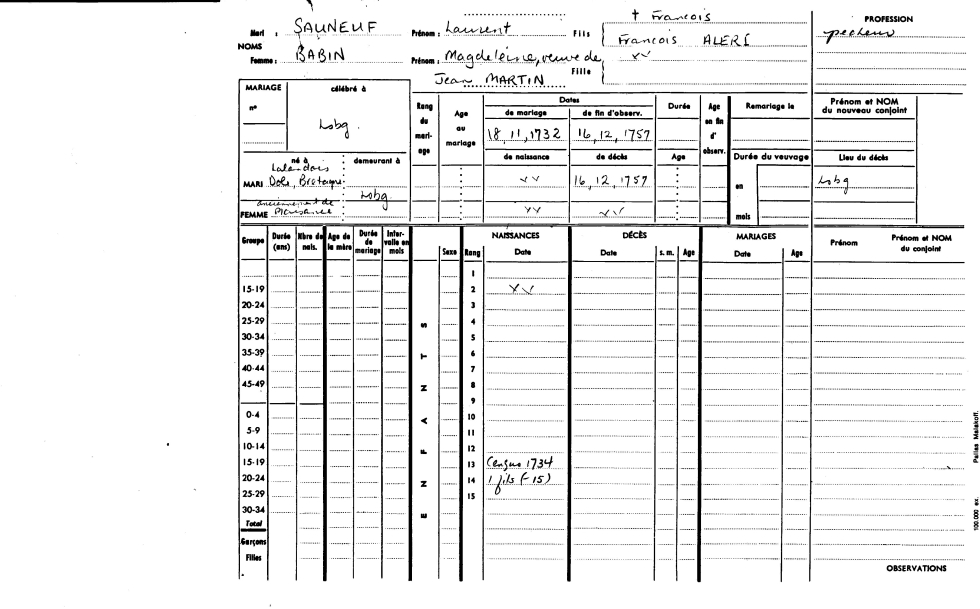 † Francois
PROFESSION
Mari : SAUNEUF Prénom : Laurent Fils Francois ALERI pecheur
NOMS
Femme : BABIN Prénom : Magdeleine, veuve de Fille vv
Jean MARTIN
MARIAGE célébré à
n°
Lsbg.
Rang du mariage
Age au mariage
Dates
de mariage de fin d'observ.
18, 11, 1732 16, 12, 1757
de naissance de décès
Durée
Age en fin d' observ.
Remariage le
Prénom et NOM du nouveau conjoint
Age
Durée du veuvage
Lieu du décès
né à demeurant à
MARI Dole, Bretagne vv 16, 12, 1757 en Lsbg
Lsbg
anciennement de
FEMME Plaisance vv vv mois
Groupe Durée (ans) Nbre de nais. Age de la mère Durée de mariage Inter-valle en mois
Sexe Rang
NAISSANCES Date
DÉCÈS Date s. m. Age
MARIAGES Date Age
Prénom
Prénom et NOM du conjoint
1
15-19 2 vv
20-24 3
25-29 4
30-34 5
35-39 6
40-44 7
45-49 8
9
0-4 10
5-9 11
10-14 12
15-19 13 Census 1734
20-24 14 1 fils (-15)
25-29 15
30-34
Total
Garçons
Filles
ENFANTS
OBSERVATIONS
100.000 ex. Parlas Malakoff.